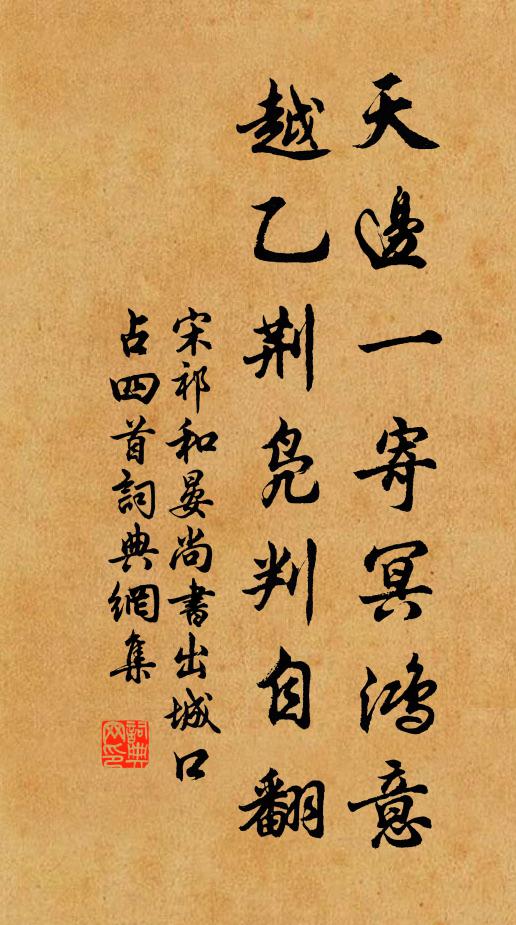 天邊一寄冥鴻意
越乙荆凫判自翻
宋祁和晏尚書出城口
占四首詞典網集
詞典網印